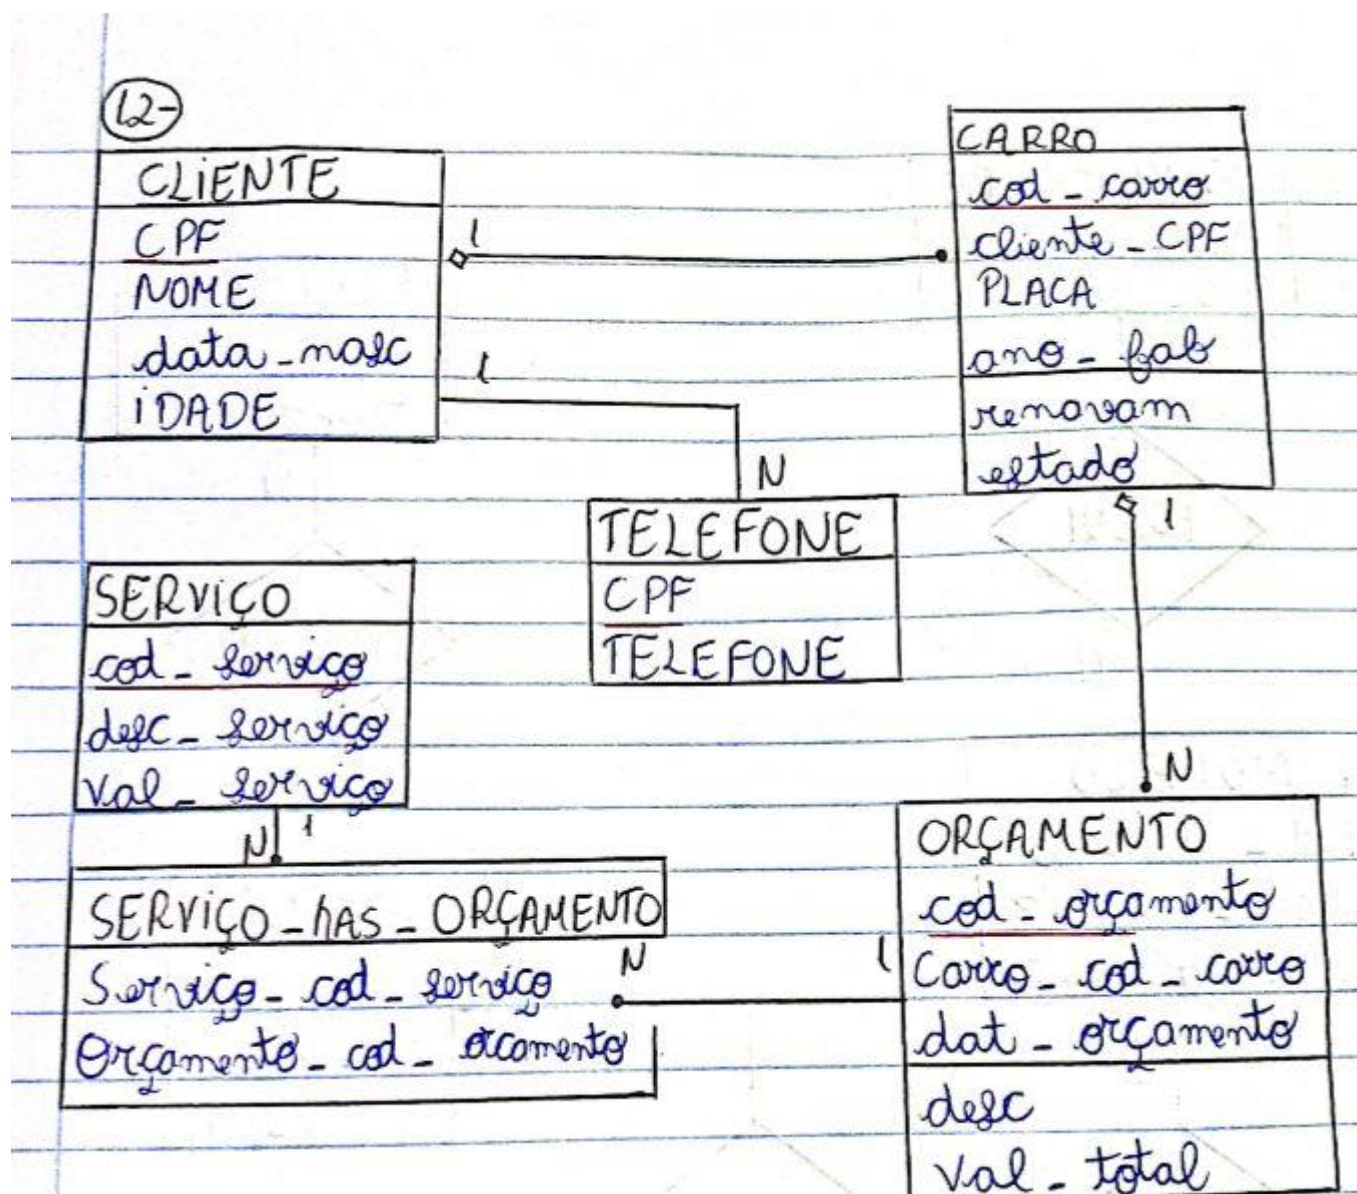 12-
CLIENTE
CPF
NOME
data_nasc
IDADE
1
1
N
CARRO
cod_carro
cliente_CPF
PLACA
ano_fab
renavam
estado
1
N
TELEFONE
CPF
TELEFONE
SERVIÇO
cod_serviço
desc_serviço
Val_serviço
N 1
SERVIÇO_hAS_ORÇAMENTO
Serviço_cod_serviço
Orçamento_cod_orcamento
N
1
ORÇAMENTO
cod_orçamento
Carro_cod_carro
dat_orçamento
desc
Val_total